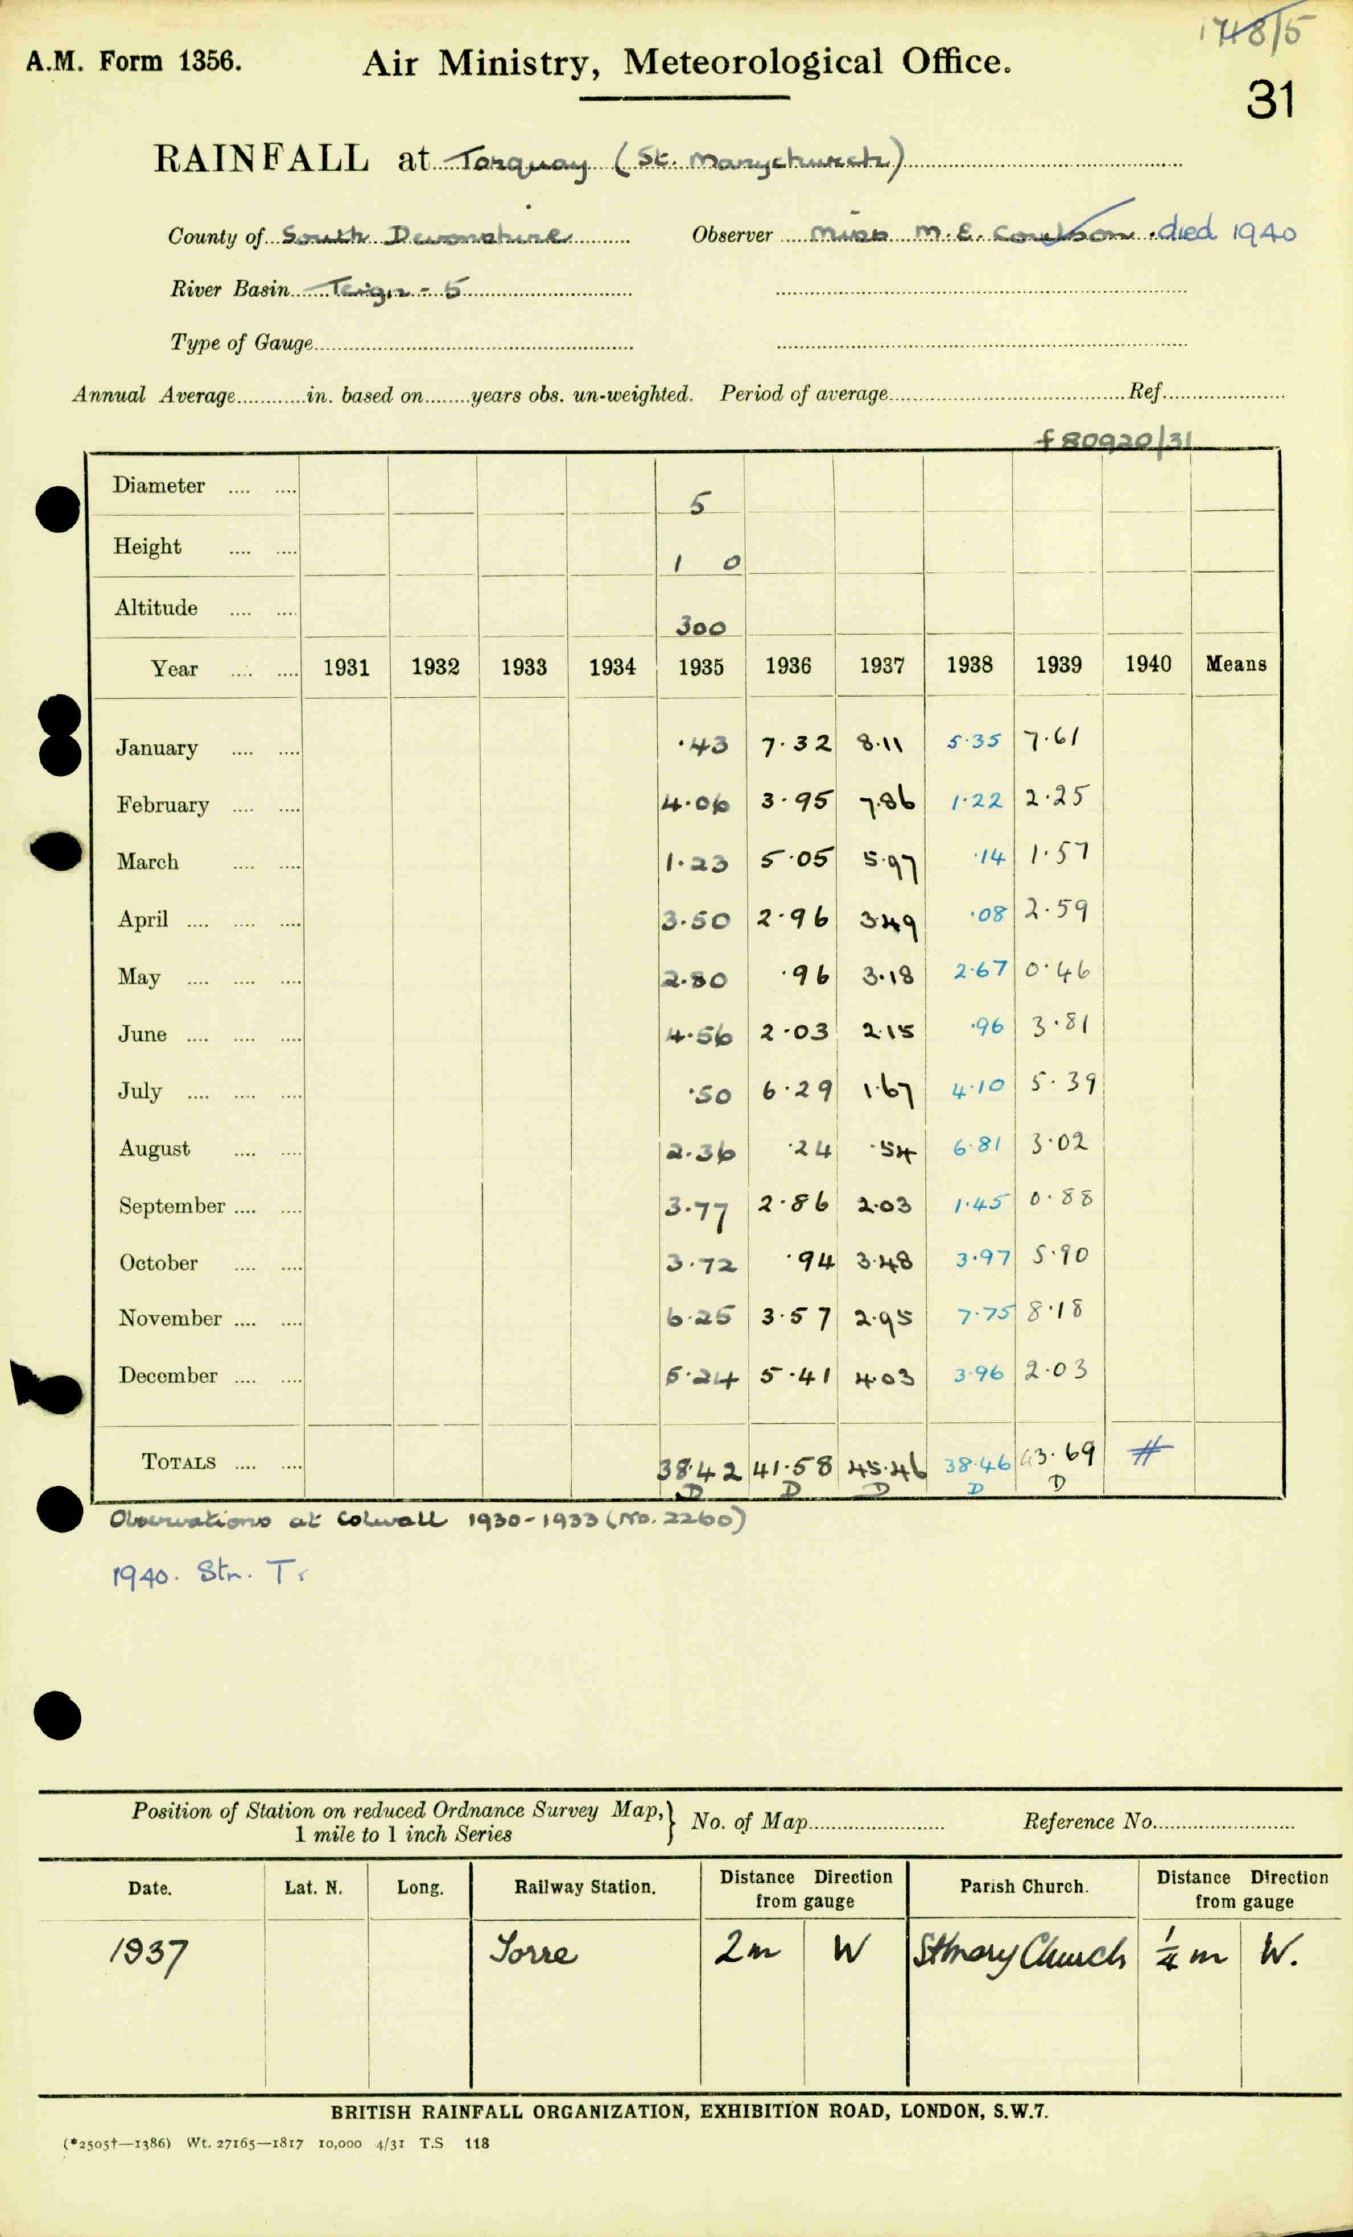 1748/5
A.M. Form 1356. Air Ministry, Meteorological Office.
31
RAINFALL at Torquay (St. Marychurch)
County of South Devonshire Observer Miss M. E. Coulson. died 1940
River Basin Teign - 5
Type of Gauge
Annual Average in. based on years obs. un-weighted. Period of average Ref.
f 80920/31
Diameter 5
Height 1 0
Altitude 300
Year 1931 1932 1933 1934 1935 1936 1937 1938 1939 1940 Means
January .43 7.32 8.11 5.35 7.61
February 4.06 3.95 7.86 1.22 2.25
March 1.23 5.05 5.97 .14 1.57
April 3.50 2.96 3.49 .08 2.59
May 2.80 .96 3.18 2.67 0.46
June 4.56 2.03 2.15 .96 3.81
July .50 6.29 1.67 4.10 5.39
August 2.36 .24 .54 6.81 3.02
September 3.77 2.86 2.03 1.45 0.88
October 3.72 .94 3.48 3.97 5.90
November 6.25 3.57 2.95 7.75 8.18
December 5.24 5.41 4.03 3.96 2.03
TOTALS 38.42 41.58 45.46 38.46 43.69 #
D D D D D
Observations at Colwall 1930-1933 (No. 2260)
1940. Stn. Tr
Position of Station on reduced Ordnance Survey Map, } No. of Map Reference No.
1 mile to 1 inch Series
Date. Lat. N. Long. Railway Station. Distance Direction from gauge Parish Church. Distance Direction from gauge
1937 Torre 2 m W St Mary Church 1/4 m W.
BRITISH RAINFALL ORGANIZATION, EXHIBITION ROAD, LONDON, S.W.7.
(*2505†—1386) Wt. 27165—1817 10,000 4/31 T.S 118